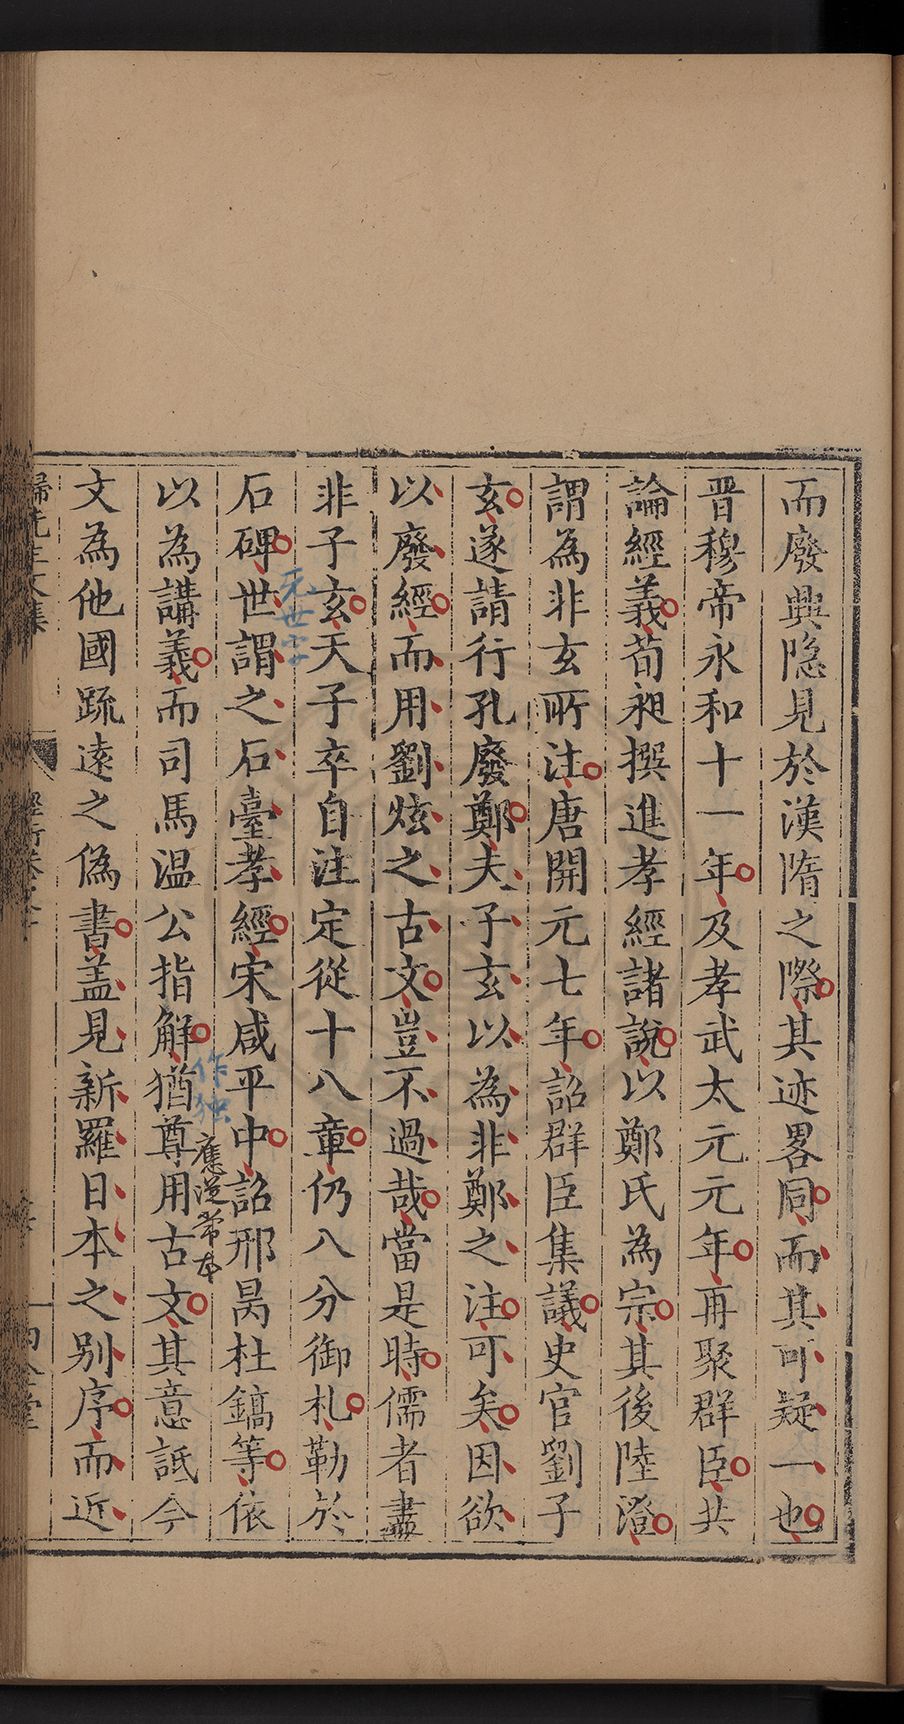 而廢興隐見於漢隋之際其迹畧同而其可疑一也
晋穆帝永和十一年及孝武太元元年再聚群臣共
論經義荀昶撰進孝經諸說以鄭氏為宗其後陸澄
謂為非玄所注唐開元七年詔群臣集議史官劉子
玄遂請行孔廢鄭夫子玄以為非鄭之注可矣因欲
以廢經而用劉炫之古文豈不過哉當是時儒者盡
非子玄天子卒自注定從十八章仍八分御札勒於
石碑世謂之石臺孝經宋咸平中詔邢昺杜鎬等依
以為講義而司馬温公指解猶尊用古文其意詆今
作独
應從常本
文為他國䟽遠之偽書盖見新羅日本之别序而近